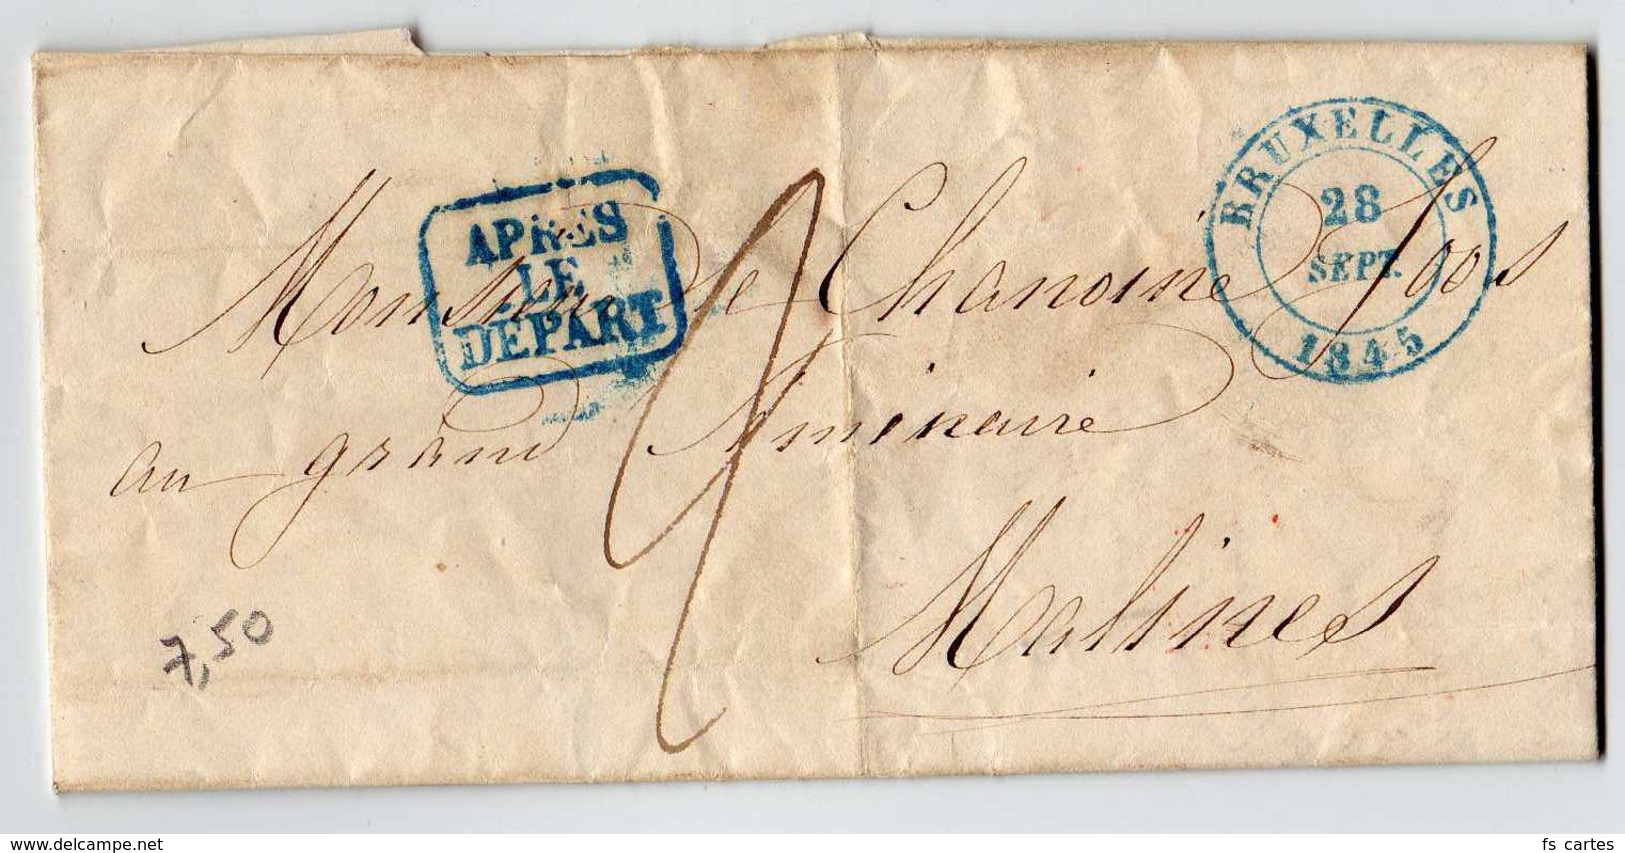 BRUXELLES
28
SEPT.
1845
APRES
LE
DEPART
Monsieur le Chanoine Loos
au grand Séminaire
Malines
7,50
delcampe.net
fs cartes